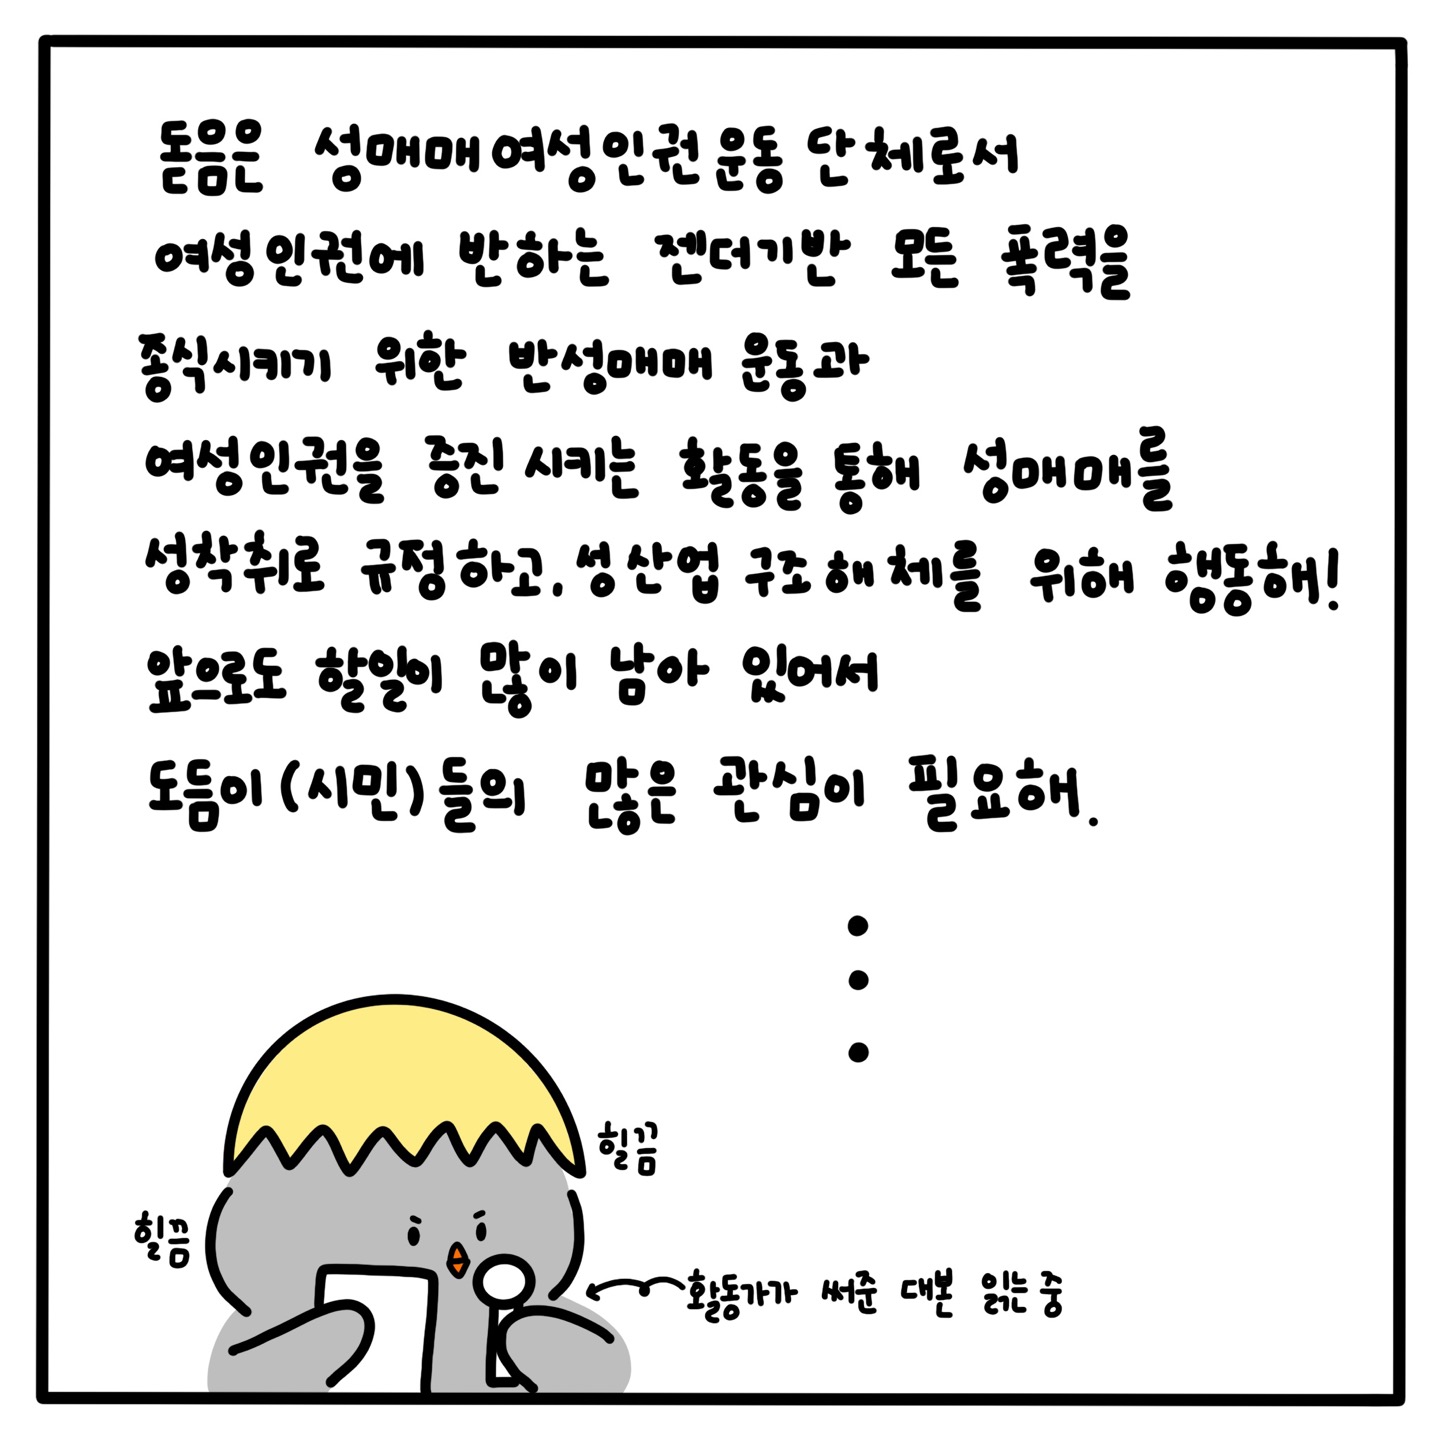 돋음은 성매매여성인권운동단체로서
여성인권에 반하는 젠더기반 모든 폭력을
종식시키기 위한 반성매매 운동과
여성인권을 증진시키는 활동을 통해 성매매를
성착취로 규정하고, 성산업 구조해체를 위해 행동해!
앞으로도 할일이 많이 남아 있어서
도듬이(시민)들의 많은 관심이 필요해.
힐끔
힐끔
활동가가 써준 대본 읽는 중